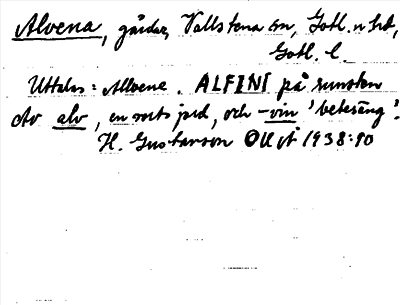 Alvena, gårdar, Vallstena sn, Gotl. n hd,
Gotl. l.
Uttalas: Allvene. ALFINI på runsten
Av alv, en sorts jord, och -vin 'betesäng'.
H. Gustavson OUÅ 1938:90